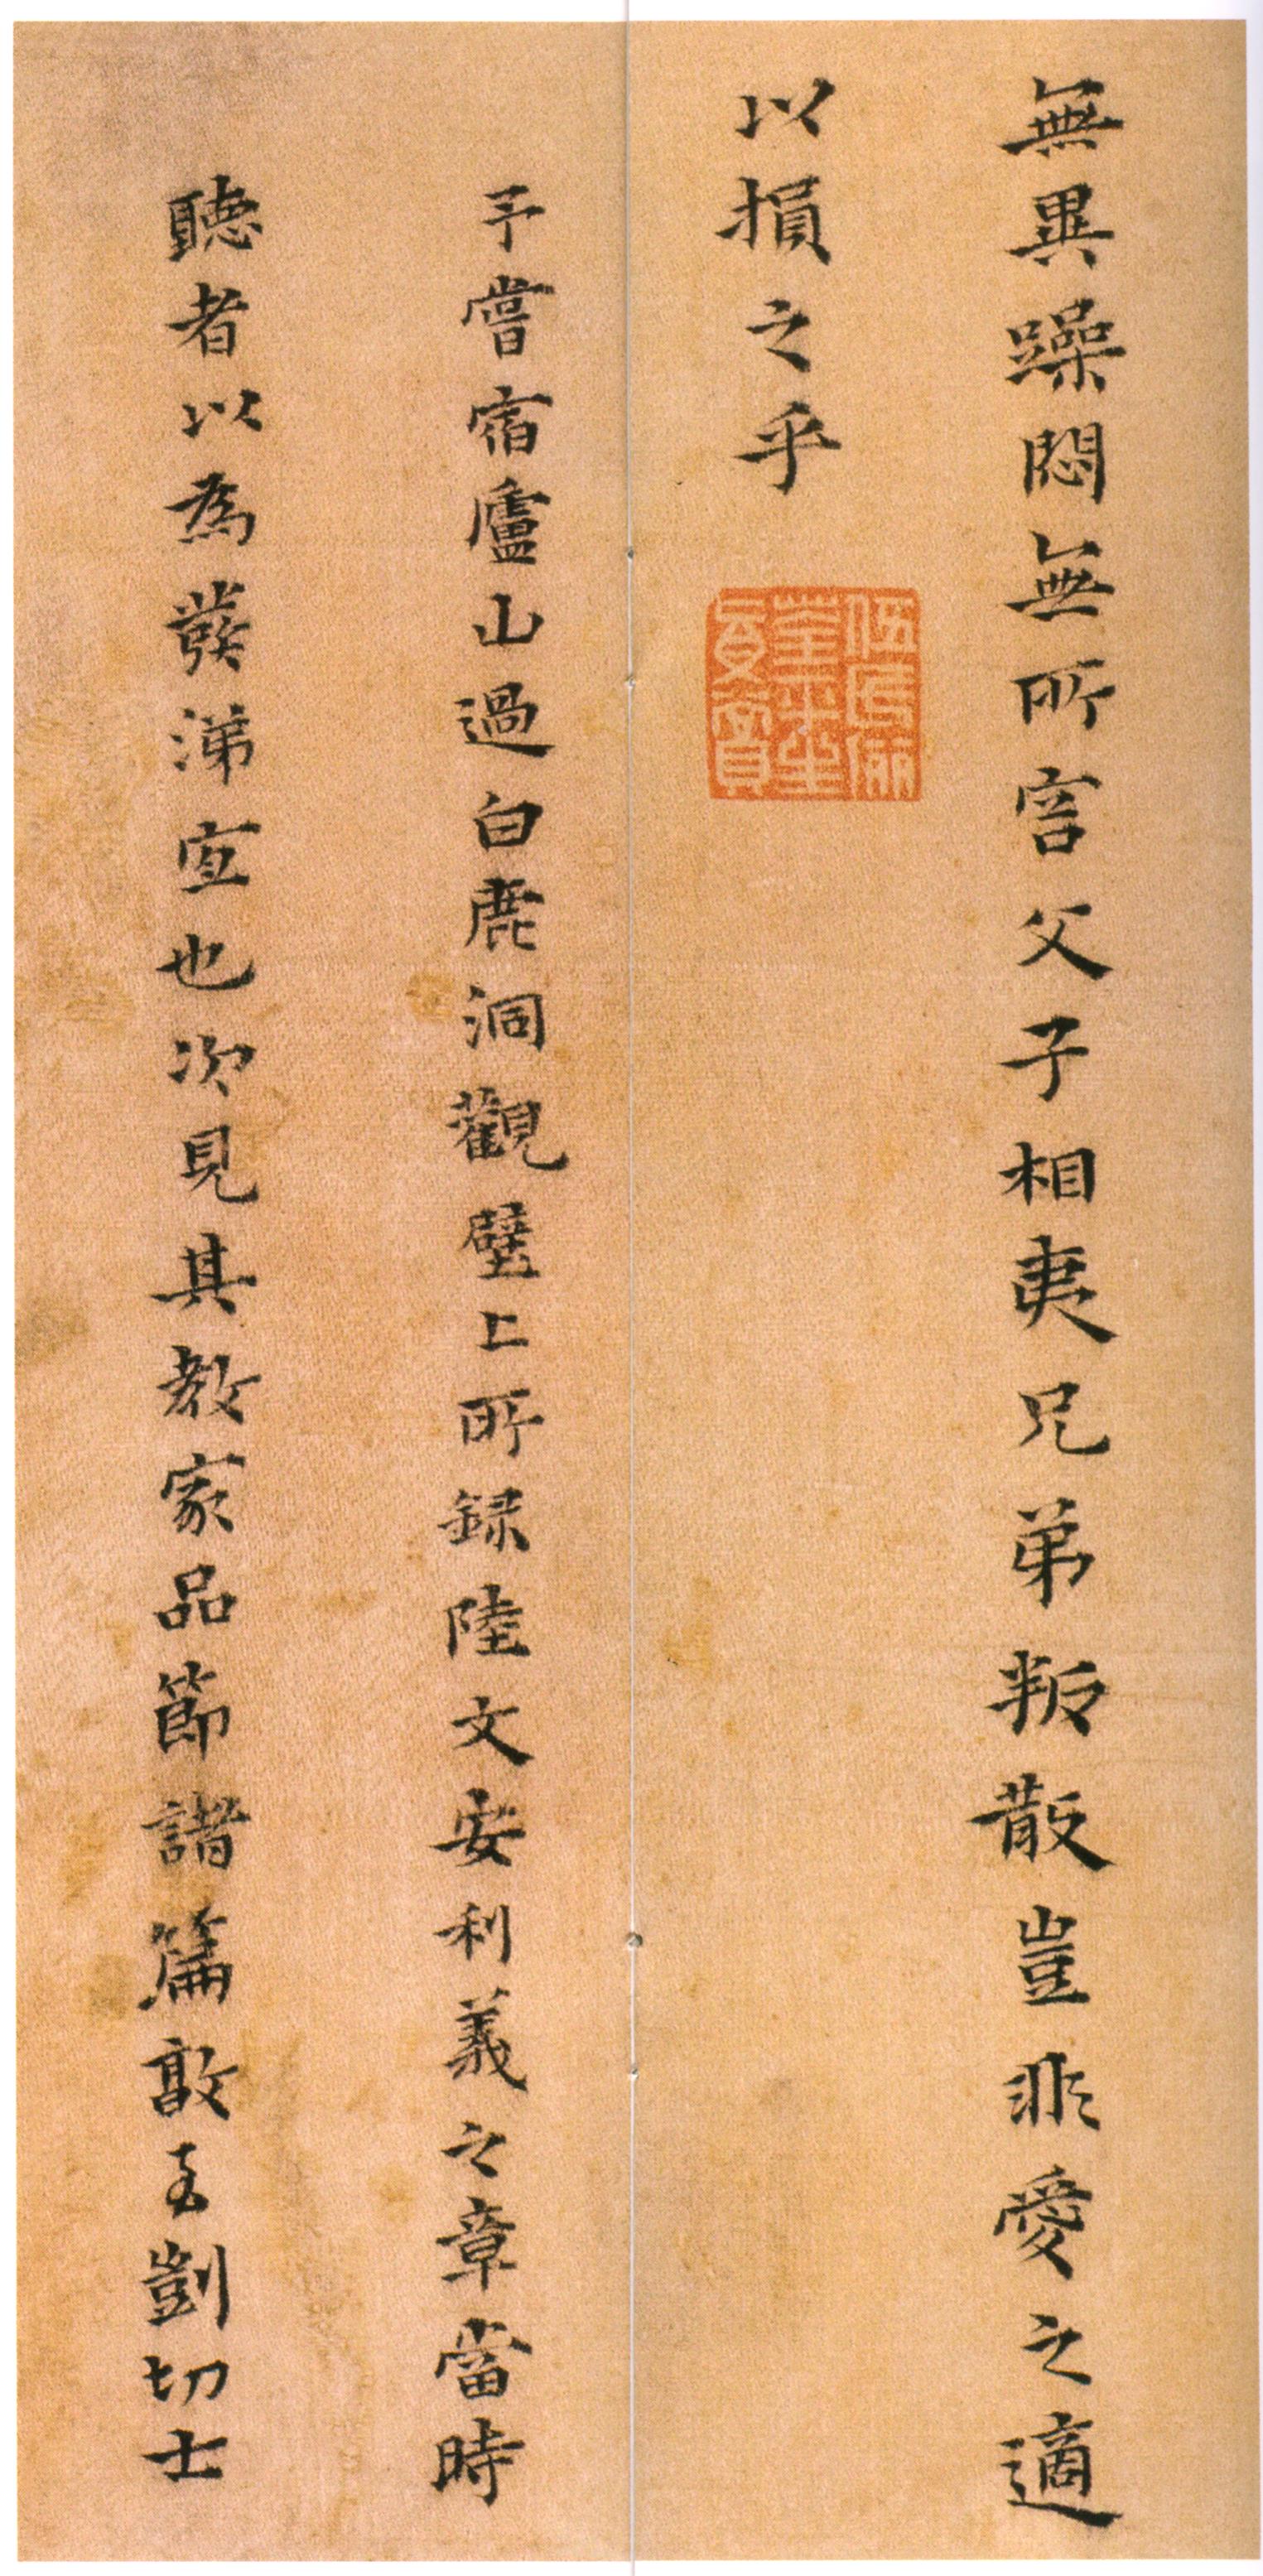 無異躁悶無所父子相夷兄弟叛散豈非愛之適
以損之乎
伍氏儷
荃平生
真賞
予嘗宿廬山過白鹿洞觀壁上所録陸文安利義之章當時
聽者以為發涕宜也次見其教家品節諸篇敦剴切士